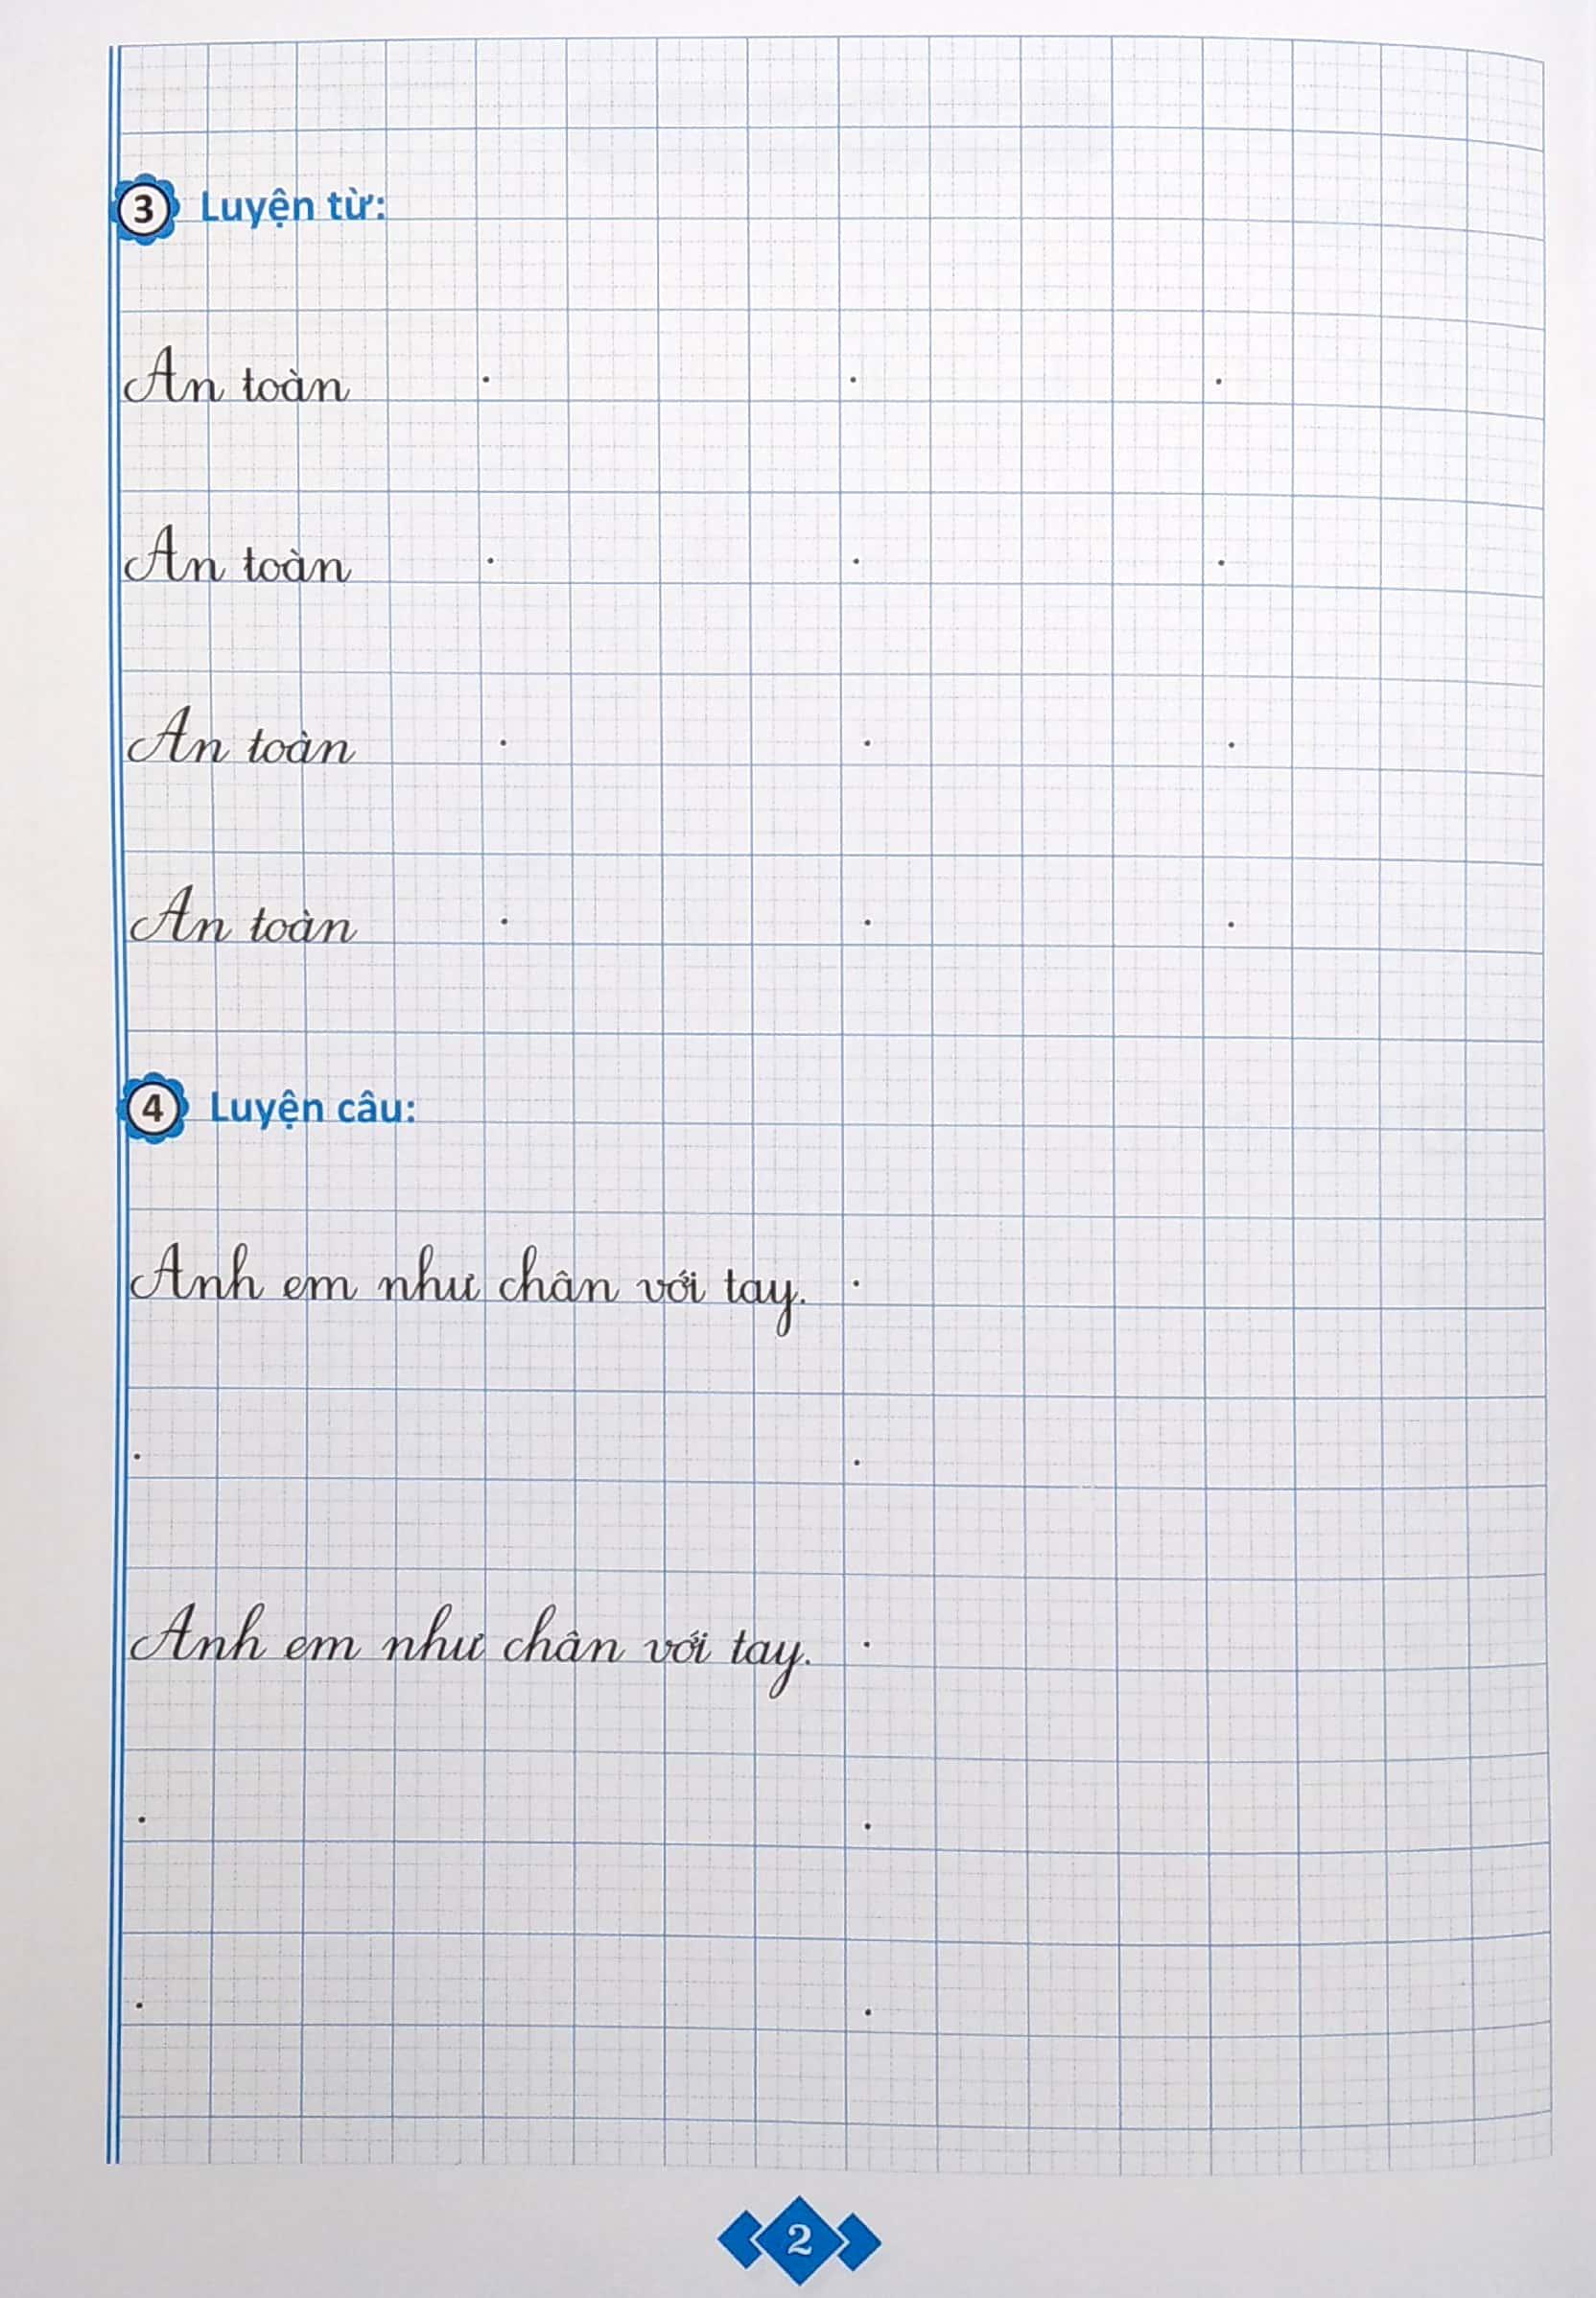 3 Luyện từ:
An toàn
An toàn
An toàn
An toàn
4 Luyện câu:
Anh em như chân với tay.
Anh em như chân với tay.
2